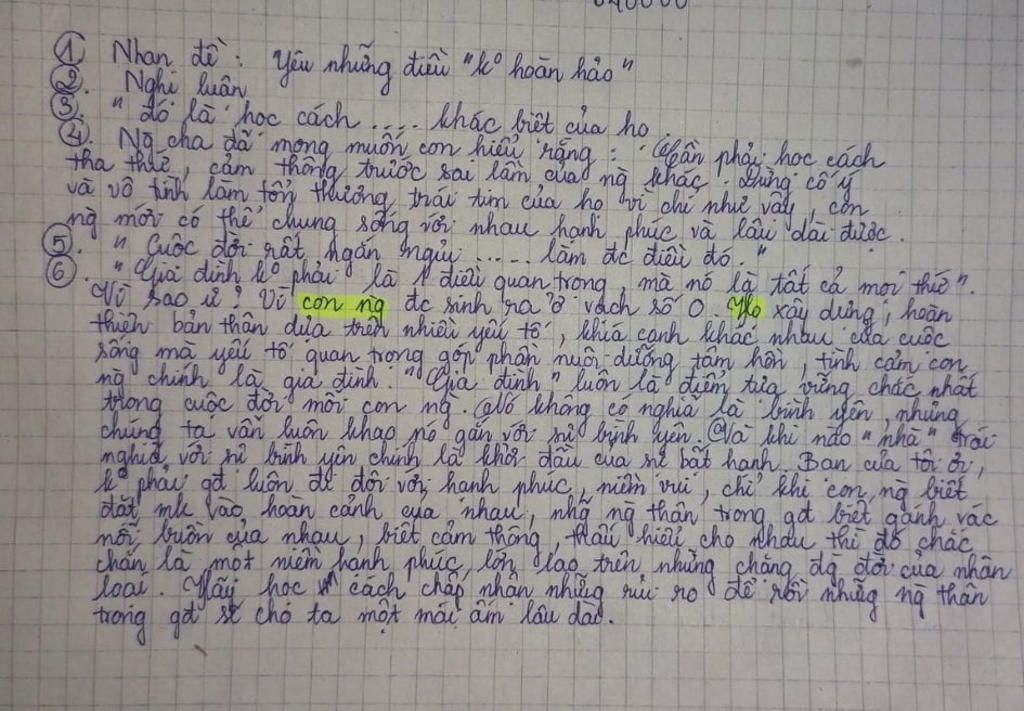 ① Nhan đề : Yêu những điều "k° hoàn hảo"
②. Nghị luận
③ " đó là học cách .... khác biệt của họ .
④. Ng cha đã mong muốn con hiểu rằng : Cần phải học cách
tha thứ, cảm thông trước sai lầm của ng khác. Đừng cố ý
và vô tình làm tổn thương trái tim của họ vì chỉ như vậy, con
ng mới có thể chung sống với nhau hạnh phúc và lâu dài được.
⑤. " Cuộc đời rất ngắn ngủi ..... làm đc điều đó. "
⑥. " Gia đình k° phải là 1 điều quan trọng, mà nó là tất cả mọi thứ".
Vì sao ư ? Vì con ng đc sinh ra ở vạch số 0. Họ xây dựng, hoàn
thiện bản thân dựa trên nhiều yếu tố, khía cạnh khác nhau của cuộc
sống mà yếu tố quan trọng góp phần nuôi dưỡng tâm hồn, tình cảm con
ng chính là gia đình. " Gia đình " luôn là điểm tựa vững chắc nhất
trong cuộc đời mỗi con ng. Nó không có nghĩa là bình yên, nhưng
chúng ta vẫn luôn khao nó gắn với sự bình yên. Và khi nào "nhà" trái
nghĩa với sự bình yên chính là khởi đầu của sự bất hạnh. Bạn của tôi ơi,
k° phải gđ luôn đi đôi với hạnh phúc, niềm vui, chỉ khi con ng biết
đặt mk vào hoàn cảnh của nhau, nhg ng thân trong gđ biết gánh vác
nỗi buồn của nhau, biết cảm thông, thấu hiểu cho nhau thì đó chắc
chắn là một niềm hạnh phúc lớn lao trên những chặng đg đời của nhân
loại. Hãy học cách chấp nhận những rủi ro để rồi những ng thân
trong gđ sẽ cho ta một mái ấm lâu dài.